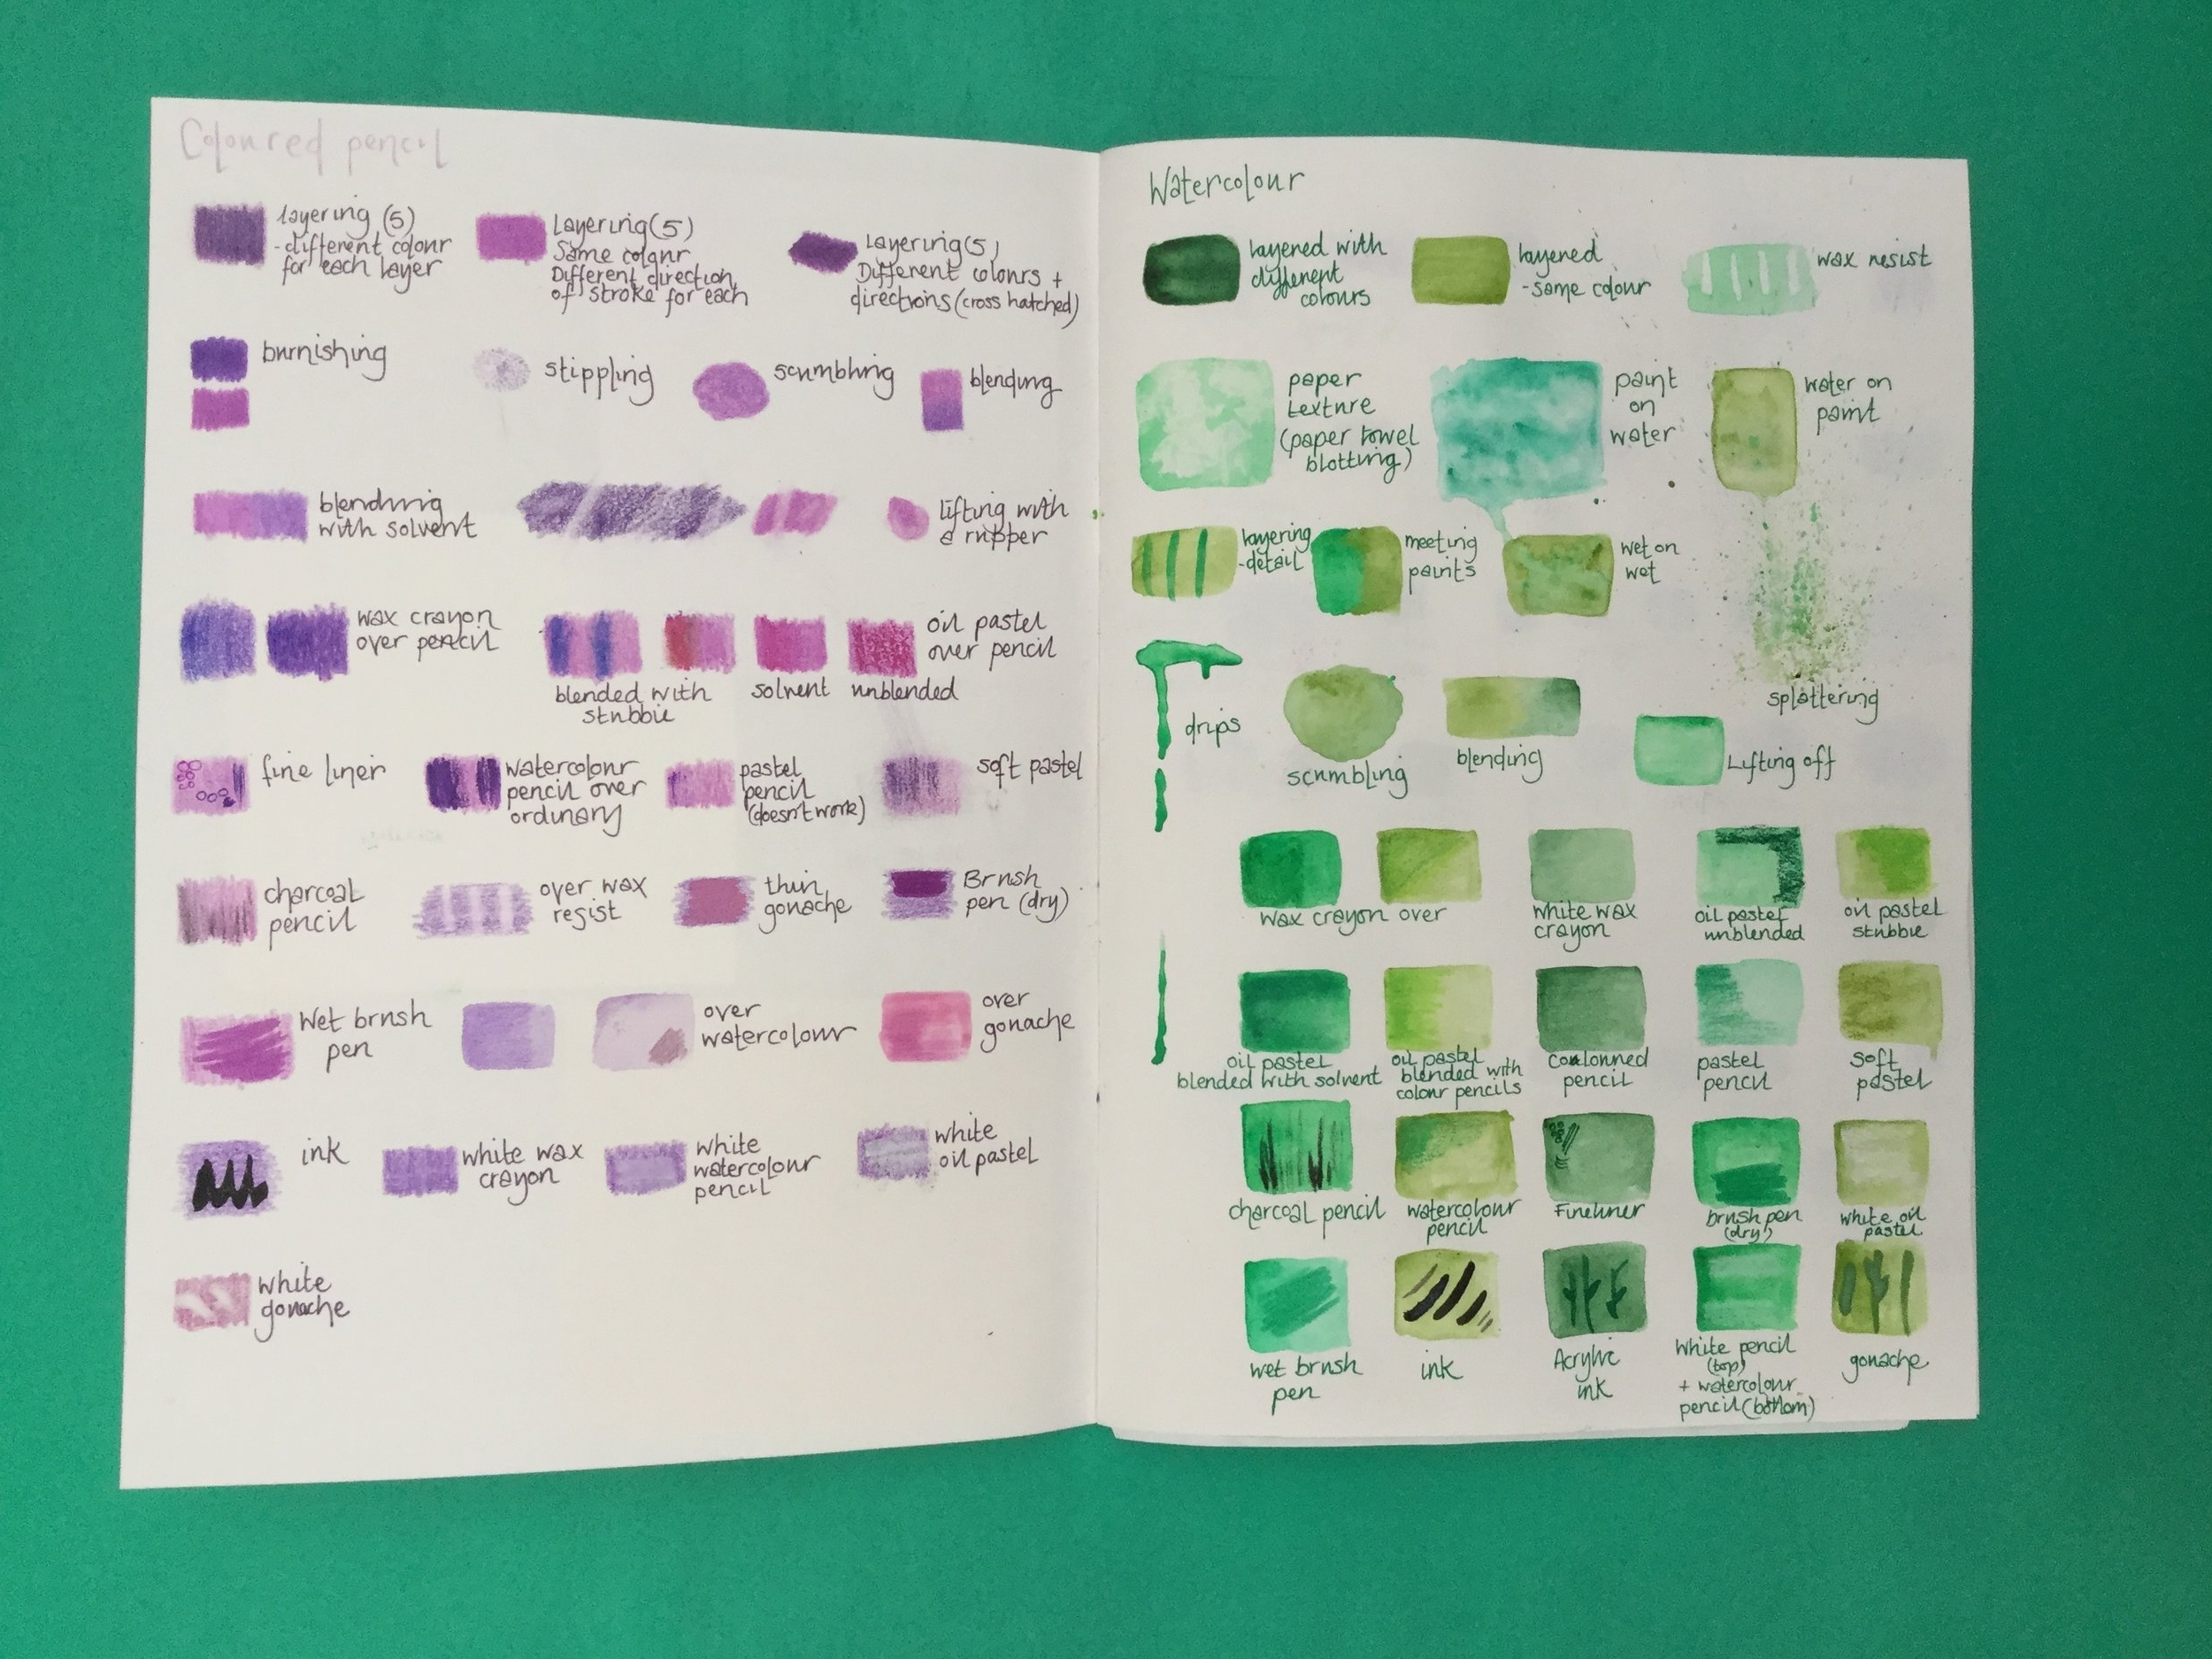 Coloured pencil
layering (5)
- different colour
for each layer
Layering (5)
Same colour
Different direction
of stroke for each
Layering (5)
Different colours +
directions (cross hatched)
burnishing
stippling
scumbling
blending
blending
with solvent
lifting with
a rubber
wax crayon
over pencil
blended with
stubbie
solvent
unblended
oil pastel
over pencil
fine liner
watercolour
pencil over
ordinary
pastel
pencil
(doesn't work)
soft pastel
charcoal
pencil
over wax
resist
thin
gouache
Brush
pen (dry)
Wet brush
pen
over
watercolour
over
gouache
ink
white wax
crayon
white
watercolour
pencil
white
oil pastel
white
gouache
Watercolour
layered with
different
colours
layered
- same colour
wax resist
paper
texture
(paper towel
blotting)
paint
on
water
water on
paint
layering
- detail
meeting
paints
wet on
wet
splattering
drips
scumbling
blending
Lifting off
wax crayon over
white wax
crayon
oil pastel
unblended
oil pastel
stubbie
oil pastel
blended with solvent
oil pastel
blended with
colour pencils
pencil
pastel
pencil
soft
pastel
charcoal pencil
watercolour
pencil
Fineliner
brush pen
(dry)
white oil
pastel
wet brush
pen
ink
Acrylic
ink
White pencil
(top)
+ watercolour
pencil (bottom)
gouache